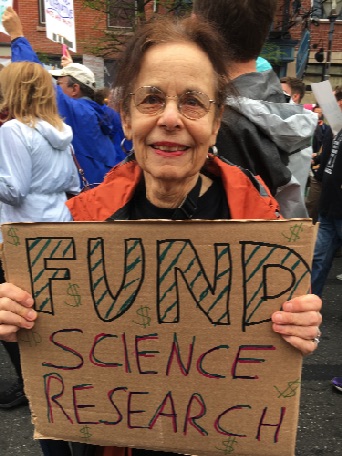 FUND
SCIENCE
RESEARCH